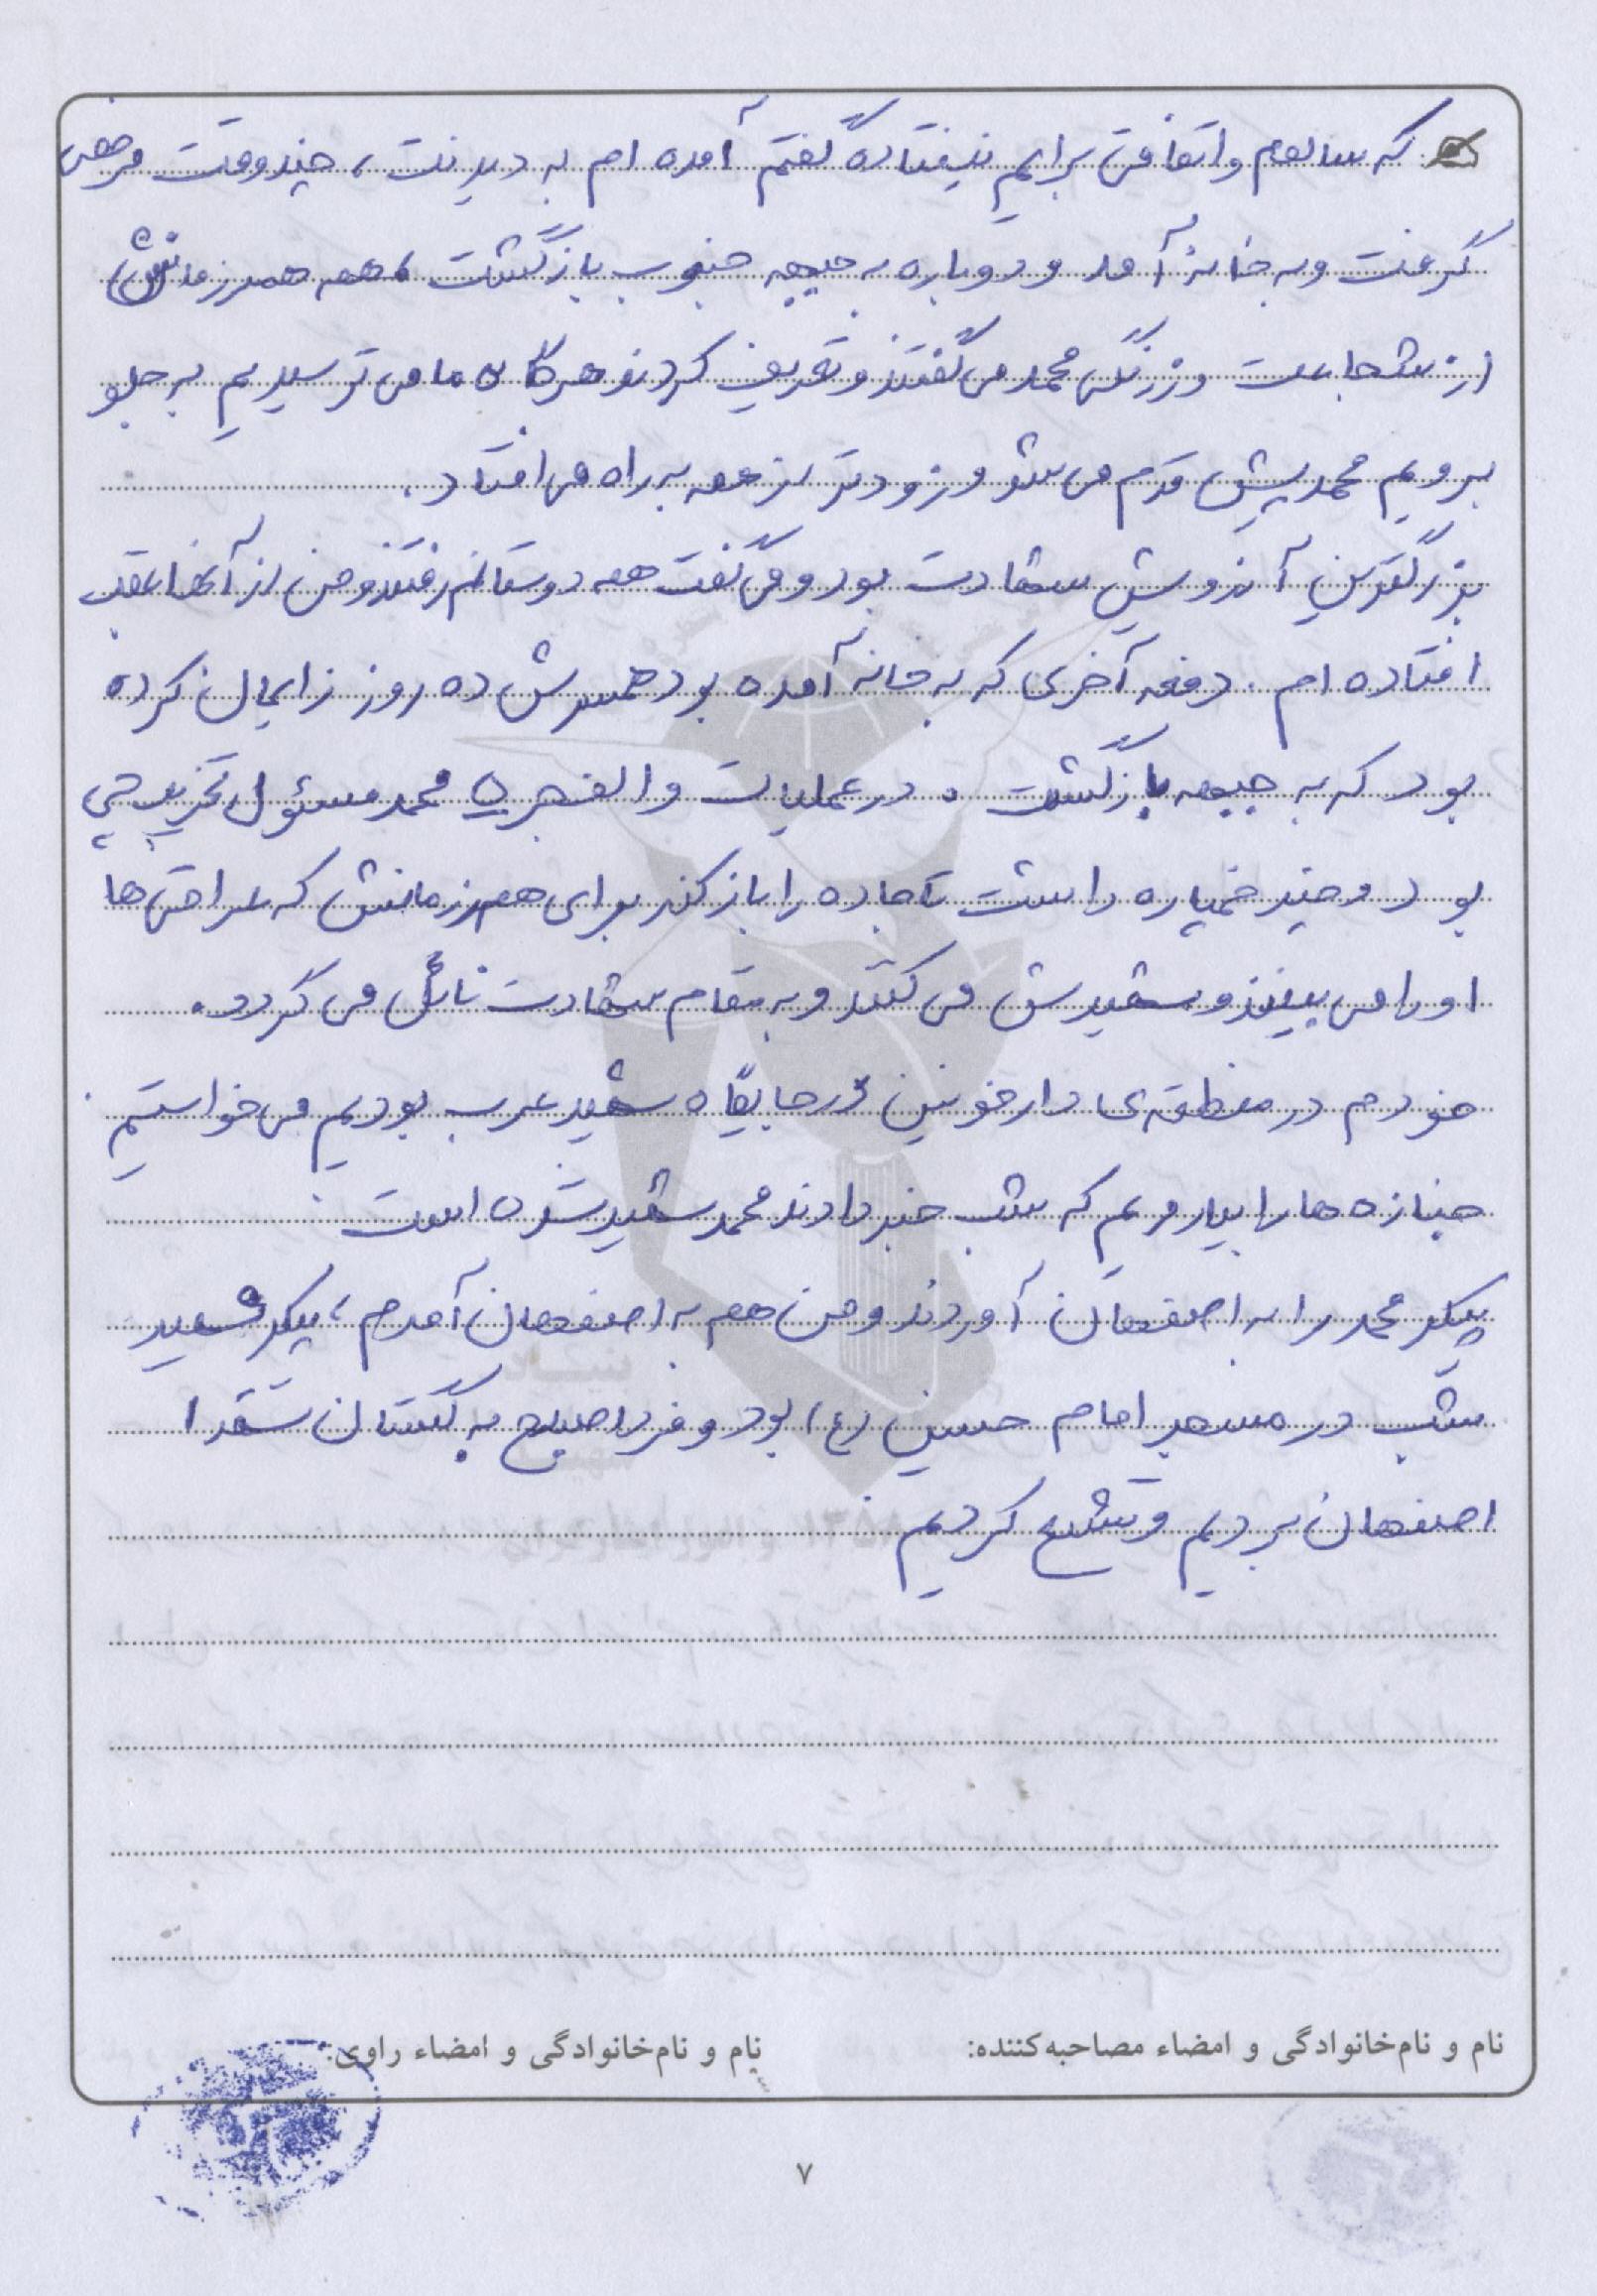 که سالم و اتفاقی برایم نیفتاده گفتم آمده ام به دیدنت، چند وقت مرخصی
گرفت و به خانه آمد و دوباره به جبهه جنوب بازگشت، همه همرزمانش
از شجاعت و زرنگی محمد می گفتند و تعریف کردند هرگاه ما می ترسیدیم به جلو
برویم محمد پیش قدم می شد و زودتر از همه به راه می افتاد.
بزرگترین آرزویش شهادت بود و می گفت همه دوستانم رفتند و من از آنها عقب
افتاده ام. دفعه آخری که به خانه آمده بود همسرش ده روز زایمان کرده
بود که به جبهه بازگشت. در عملیات والفجر ۵ محمد مسئول تخریب چی
بود و چند خمپاره داشت تا جاده را باز کند برای همرزمانش که عراقی ها
او را می بینند و شهیدش می کنند و به مقام شهادت نائل می گردد.
خودم در منطقه ی دارخوئین در جایگاه شهید عرب بودیم می خواستیم
جنازه ها را بیاوریم که شب خبر دادند محمد شهید شده است.
پیکر محمد را به اصفهان آوردند و من هم به اصفهان آمدم، پیکر شهید
شب در مسجد امام حسین (ع) بود و فردا صبح به گلستان شهدا
اصفهان بردیم و تشیع کردیم
نام و نام‌خانوادگی و امضاء مصاحبه‌کننده:
نام و نام‌خانوادگی و امضاء راوی:
۷